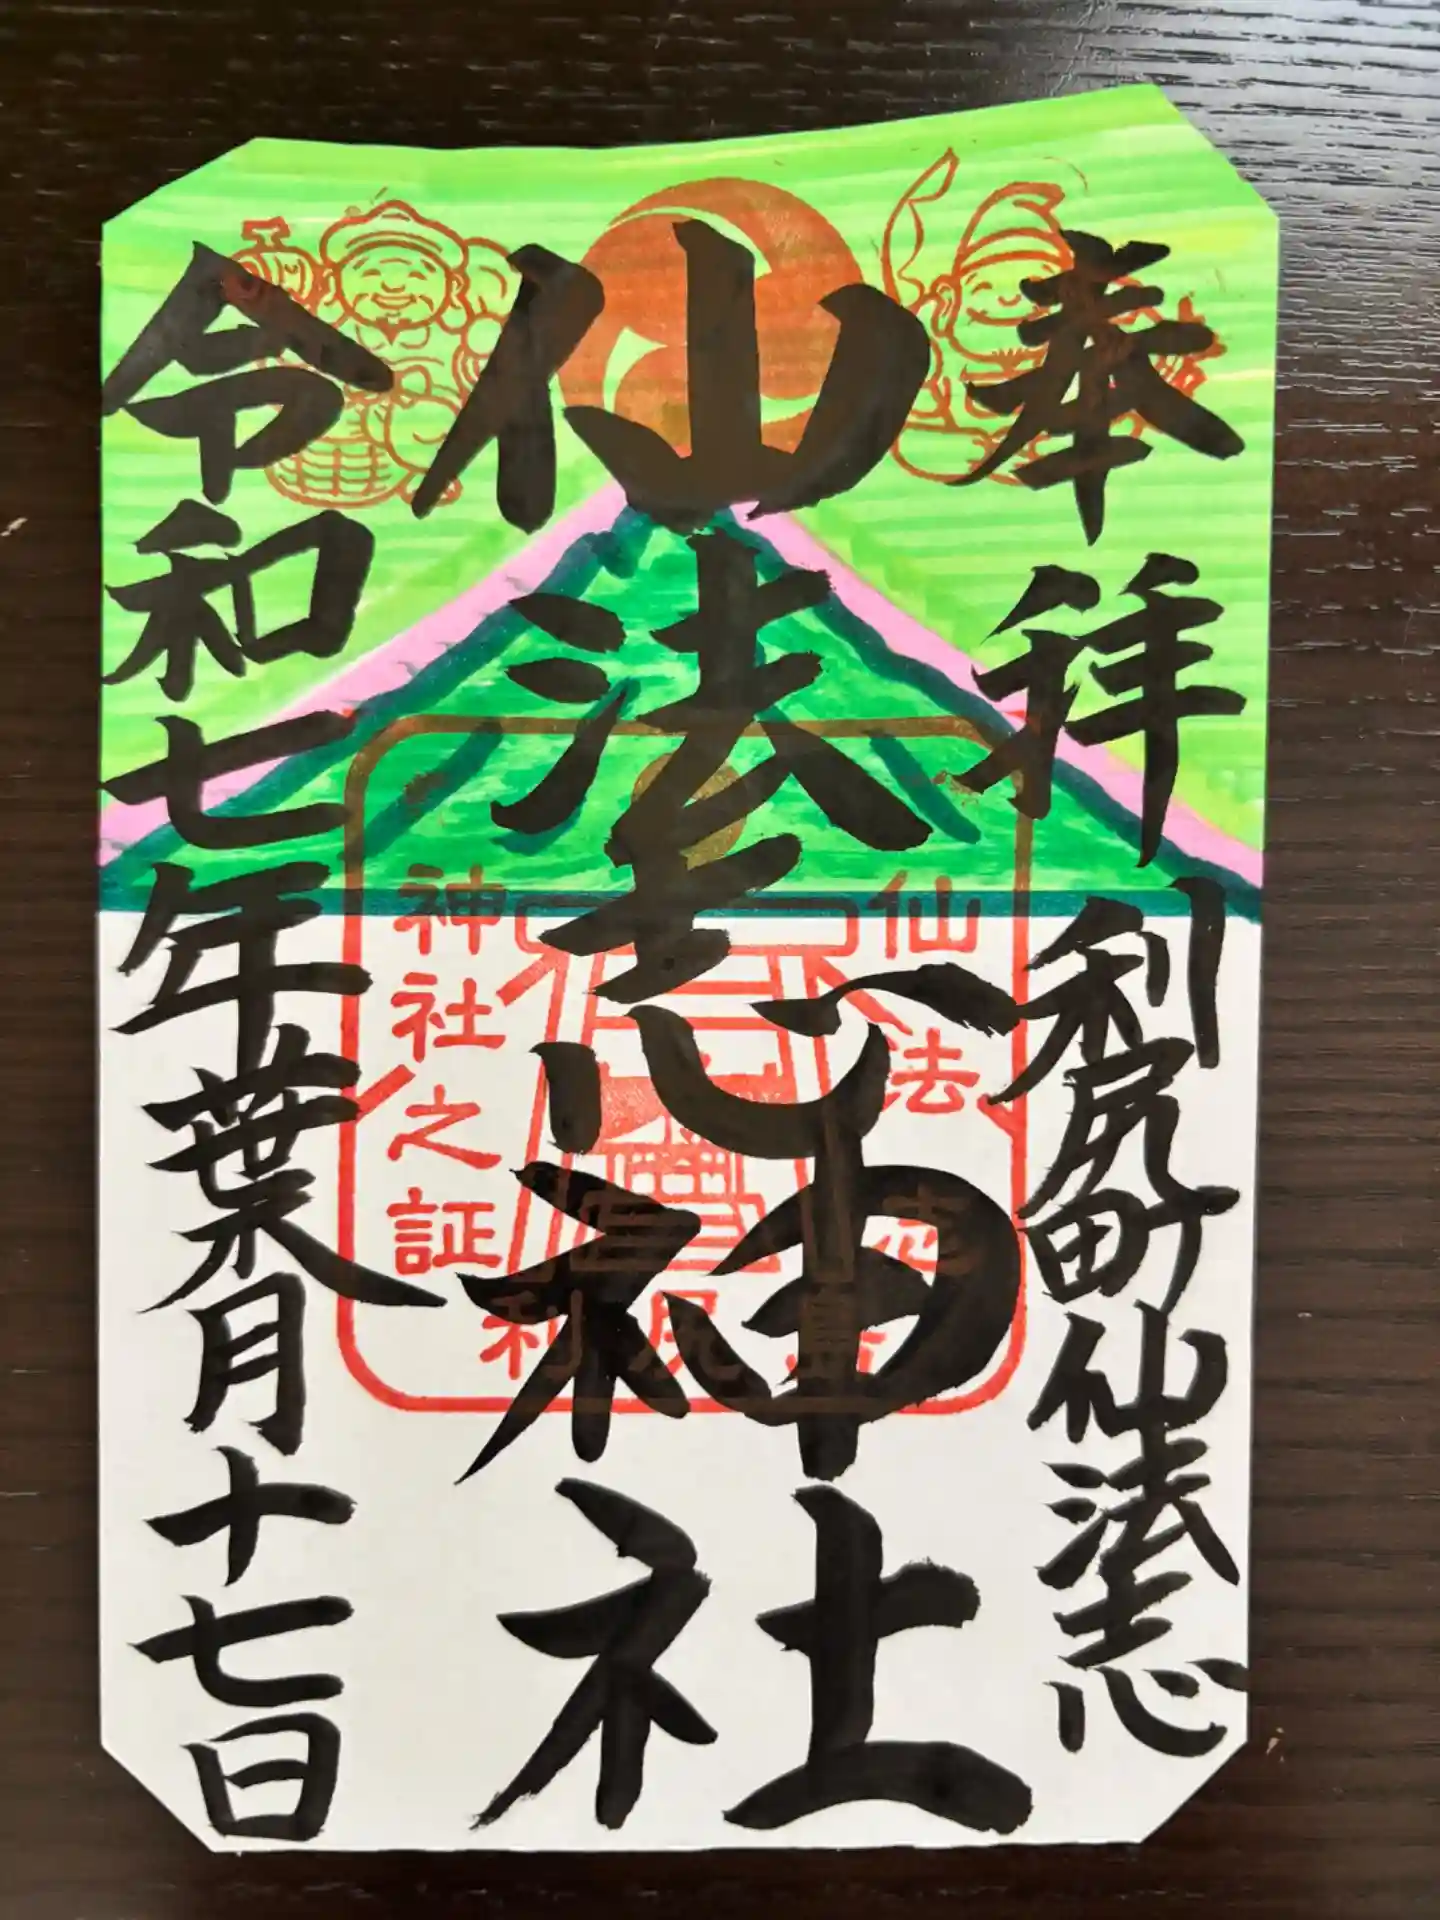 奉拝
利尻町仙法志
仙法志神社
令和七年葉月十七日
仙法志
神社之証
利尻島